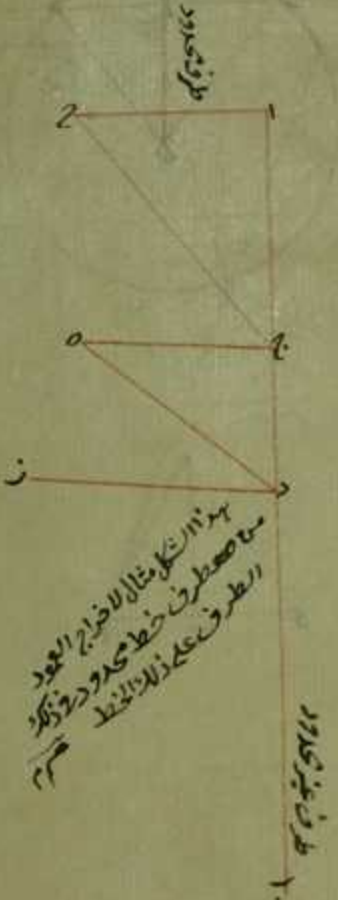 طرف محدود
ا
ح
ج
ه
د
ز
هذا الشكل مثال لاخراج العمود
من طرف خط محدود في ذلك
الطرف على ذلك الخط
طرف غير محدود
ب